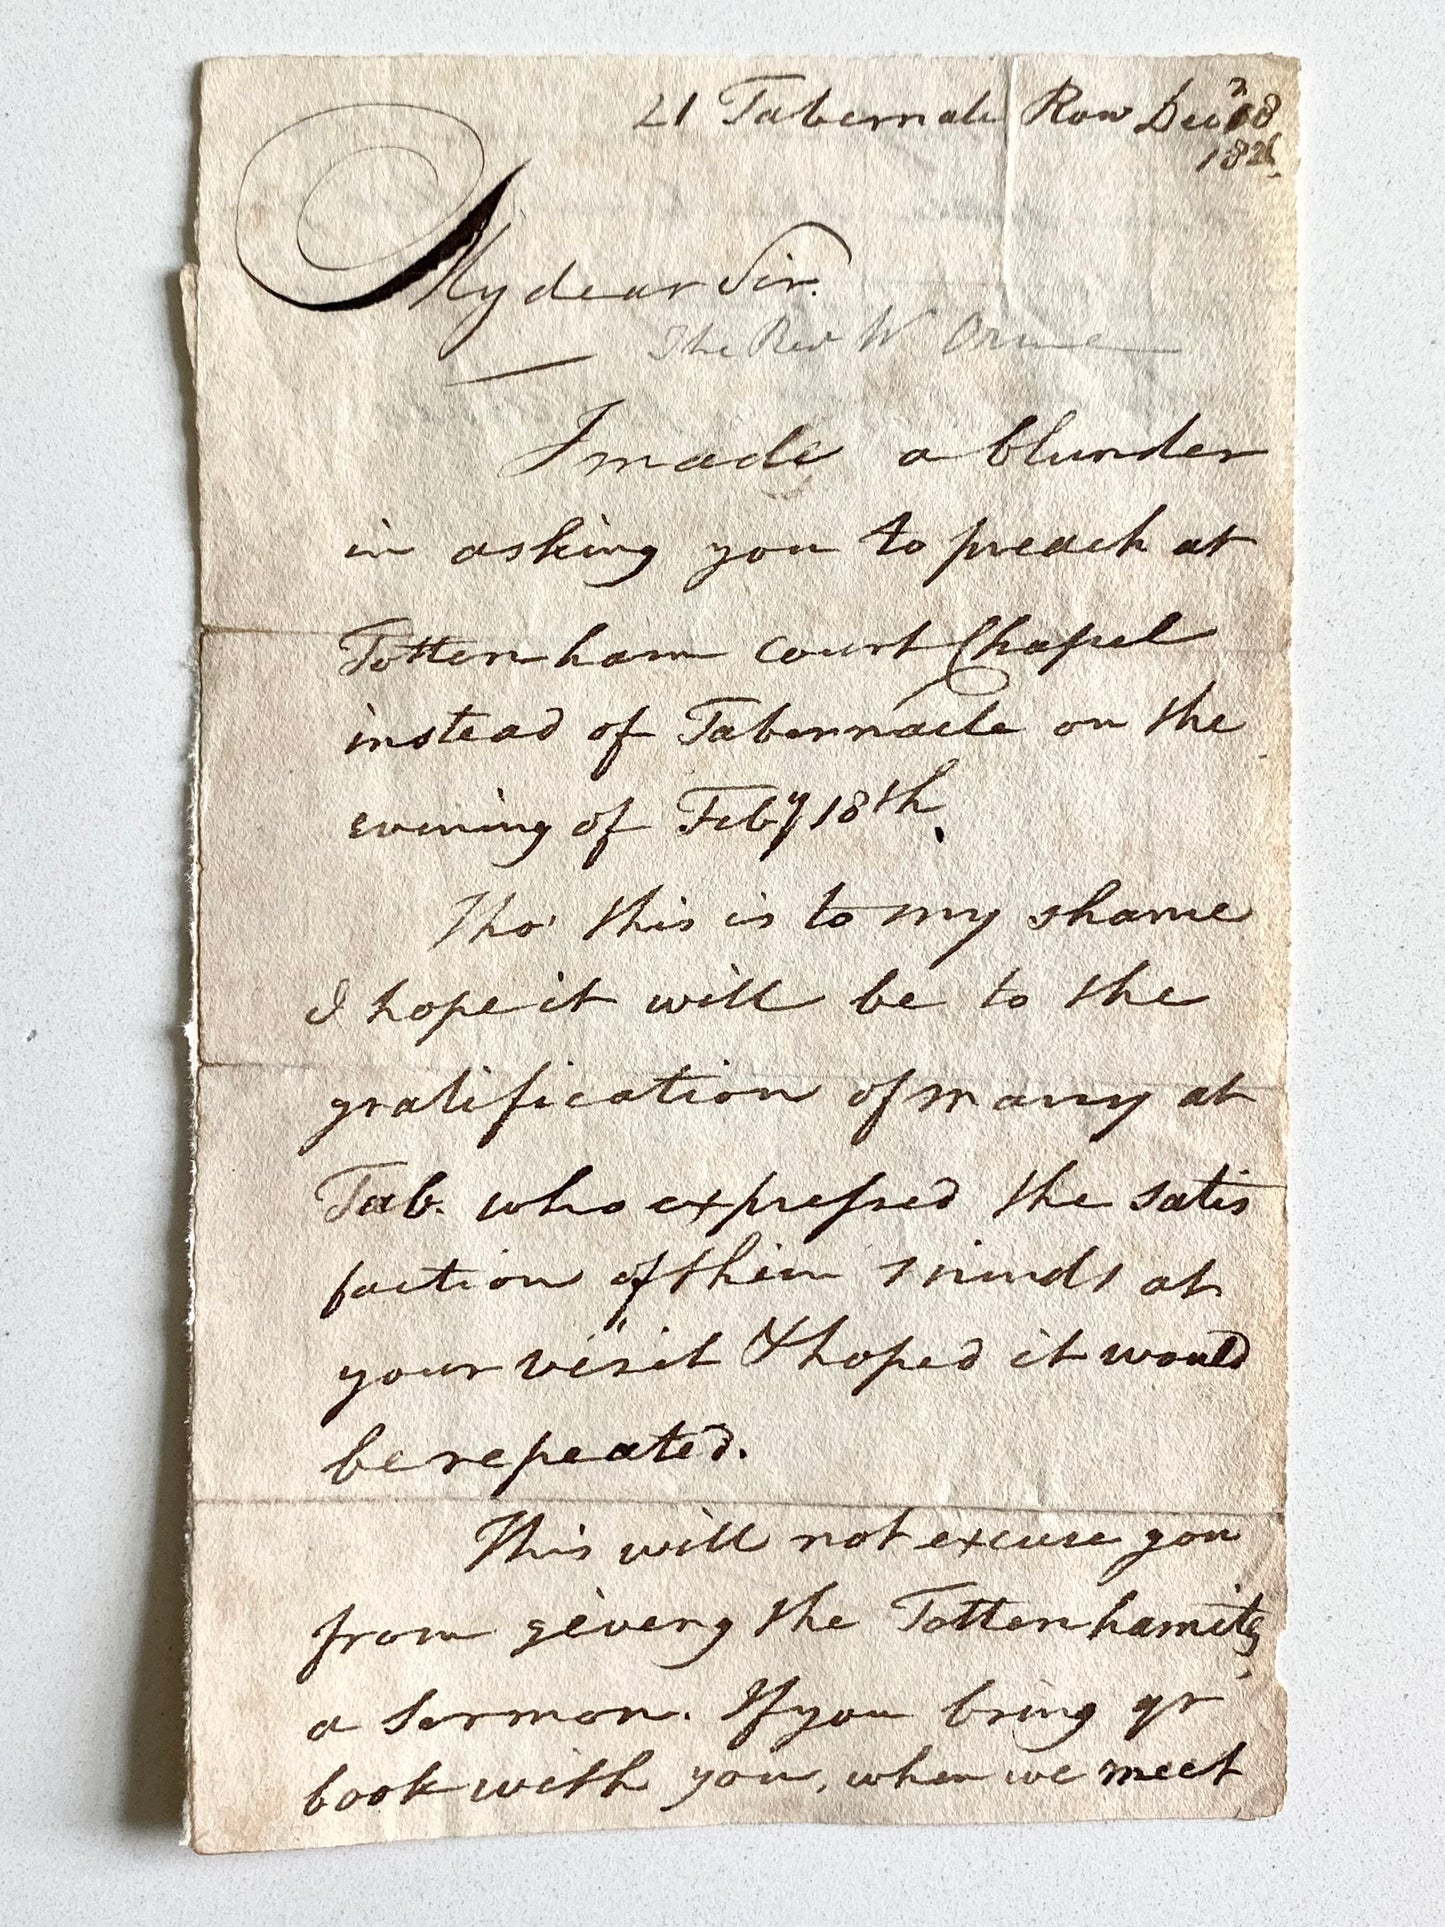 21 Tabernacle Row Decr 18
182
My dear Sir.
The Rev W Orme
I made a blunder
in asking you to preach at
Tottenham Court Chapel
instead of Tabernacle on the
evening of Feby 18th.
Tho' this is to my shame
I hope it will be to the
gratification of many at
Tab. who expressed the satis
faction of their minds at
your visit & hoped it would
be repeated.
This will not excuse you
from giveng the Tottenhamites
a Sermon. If you bring yr
book with you, when we meet